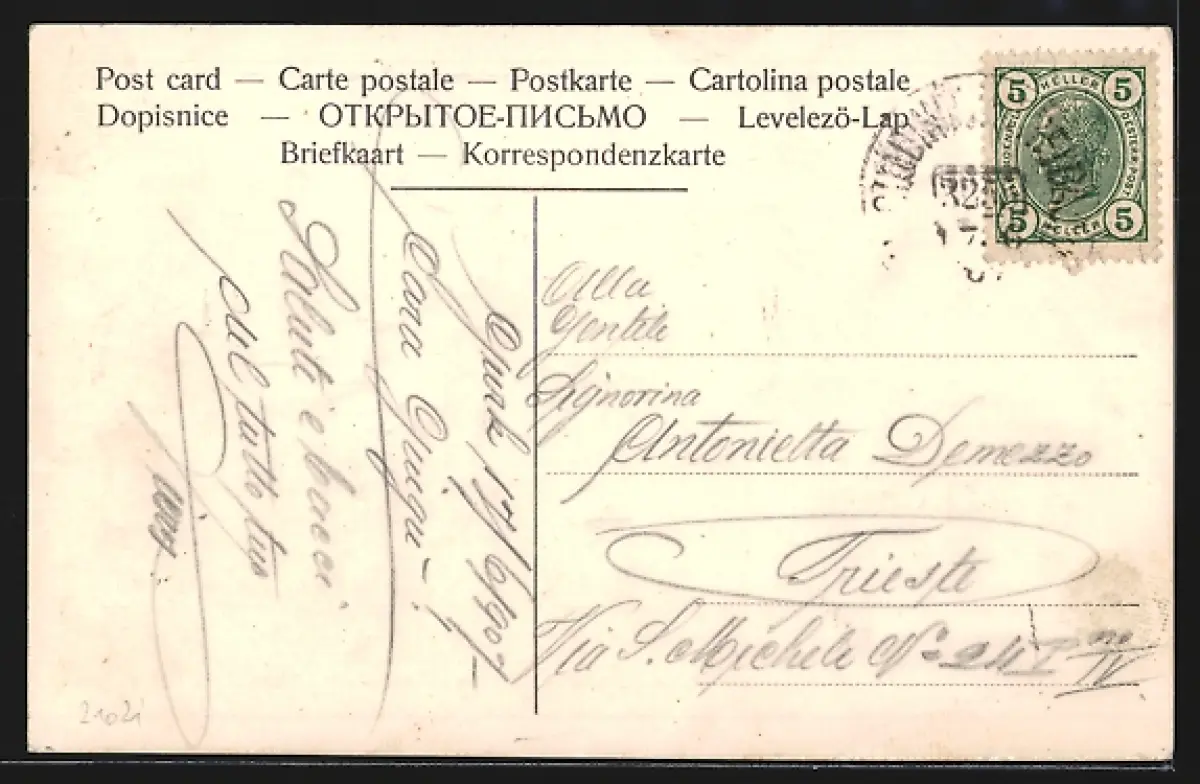 Post card — Carte postale — Postkarte — Cartolina postale
Dopisnice — ОТКРЫТОЕ-ПИСЬМО — Levelező-Lap
Briefkaart — Korrespondenzkarte
5 HELLER 5
5 HELLER 5
17/6 907
Cara Gigia!
Saluti e bacci
tutto tuo
Alla
Gentile
Signorina
Antonietta Demezzo
Trieste
Via S. Michele No 24
IV
21021